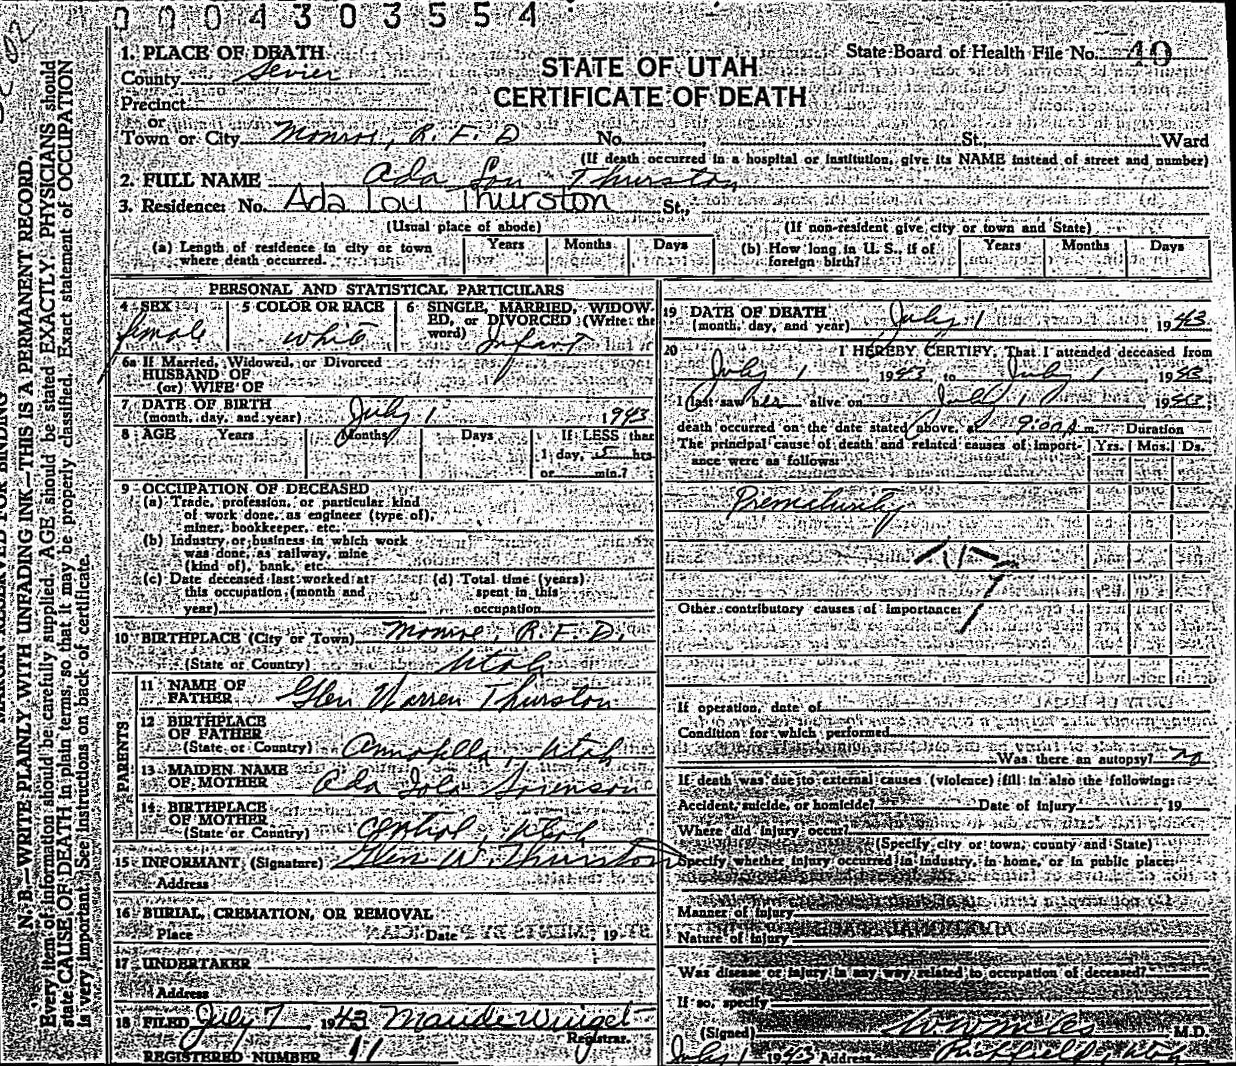 0 0 0 4 3 0 3 5 5 4
1. PLACE OF DEATH
County Sevier
Precinct
or
Town or City Monroe, R. F. D No. St., Ward
STATE OF UTAH
CERTIFICATE OF DEATH
State Board of Health File No. 40
(If death occurred in a hospital or institution, give its NAME instead of street and number)
2. FULL NAME Ada Lou Thurston
3. Residence: No. Ada Lou Thurston St.,
(Usual place of abode) (If non-resident give city or town and State)
(a) Length of residence in city or town where death occurred. Years Months Days
(b) How long in U. S., if of foreign birth? Years Months Days
N. B.—WRITE PLAINLY WITH UNFADING INK—THIS IS A PERMANENT RECORD.
Every item of information should be carefully supplied. AGE should be stated EXACTLY. PHYSICIANS should
state CAUSE OF DEATH in plain terms, so that it may be properly classified. Exact statement of OCCUPATION
is very important. See instructions on back of certificate.
PERSONAL AND STATISTICAL PARTICULARS
4 SEX female
5 COLOR OR RACE white
6 SINGLE, MARRIED, WIDOWED, or DIVORCED (Write the word) Infant
6a If Married, Widowed, or Divorced
HUSBAND OF
(or) WIFE OF
7 DATE OF BIRTH
(month, day, and year) July 1 1943
8 AGE Years Months Days If LESS than
1 day, 5 hrs
or min.?
9 OCCUPATION OF DECEASED
(a) Trade, profession, or particular kind
of work done, as engineer (type of),
miner, bookkeeper, etc.
(b) Industry or business in which work
was done, as railway, mine
(kind of), bank, etc.
(c) Date deceased last worked at
this occupation (month and
year)
(d) Total time (years)
spent in this
occupation
10 BIRTHPLACE (City or Town) Monroe, R. F. D.
(State or Country) Utah
PARENTS
11 NAME OF FATHER Glen Warren Thurston
12 BIRTHPLACE OF FATHER
(State or Country) Annabella, Utah
13 MAIDEN NAME OF MOTHER Ada Iola Sorenson
14 BIRTHPLACE OF MOTHER
(State or Country) Central, Utah
15 INFORMANT, (Signature) Glen W. Thurston
Address
16 BURIAL, CREMATION, OR REMOVAL
Place Date 19
17 UNDERTAKER
Address
18 FILED July 7 1943
Registrar.
REGISTERED NUMBER 11
19 DATE OF DEATH
(month, day, and year) July 1 1943
20 I HEREBY CERTIFY, That I attended deceased from
July 1 1943, to July 1 1943
I last saw her alive on July 1 1943;
death occurred on the date stated above, at 9:00 m. Duration
The principal cause of death and related causes of importance were as follows: Yrs. Mos. Ds.
Prematurity
Other contributory causes of importance:
If operation, date of
Condition for which performed
Was there an autopsy? no
If death was due to external causes (violence) fill in also the following:
Accident, suicide, or homicide? Date of injury , 19
Where did injury occur?
(Specify city or town, county and State)
Specify whether injury occurred in industry, in home, or in public place:
Manner of injury
Nature of injury
Was disease or injury in any way related to occupation of deceased?
If so, specify
(Signed) M.D.
July 1 1943 Address Richfield, Utah